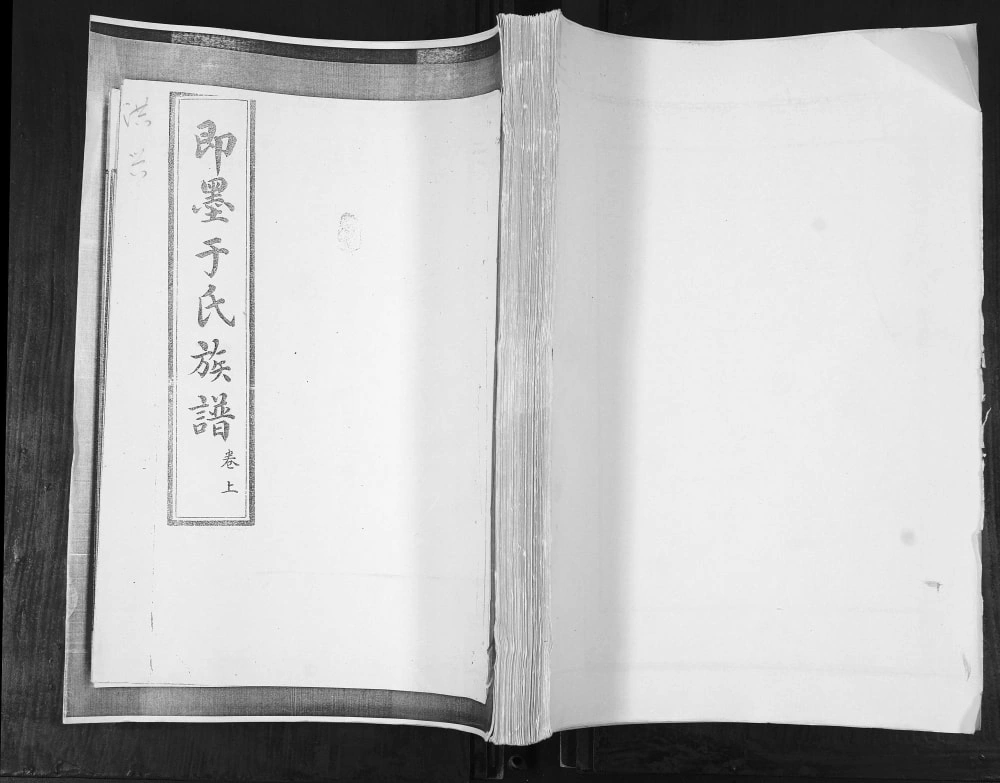 即墨于氏族譜
卷上
洪